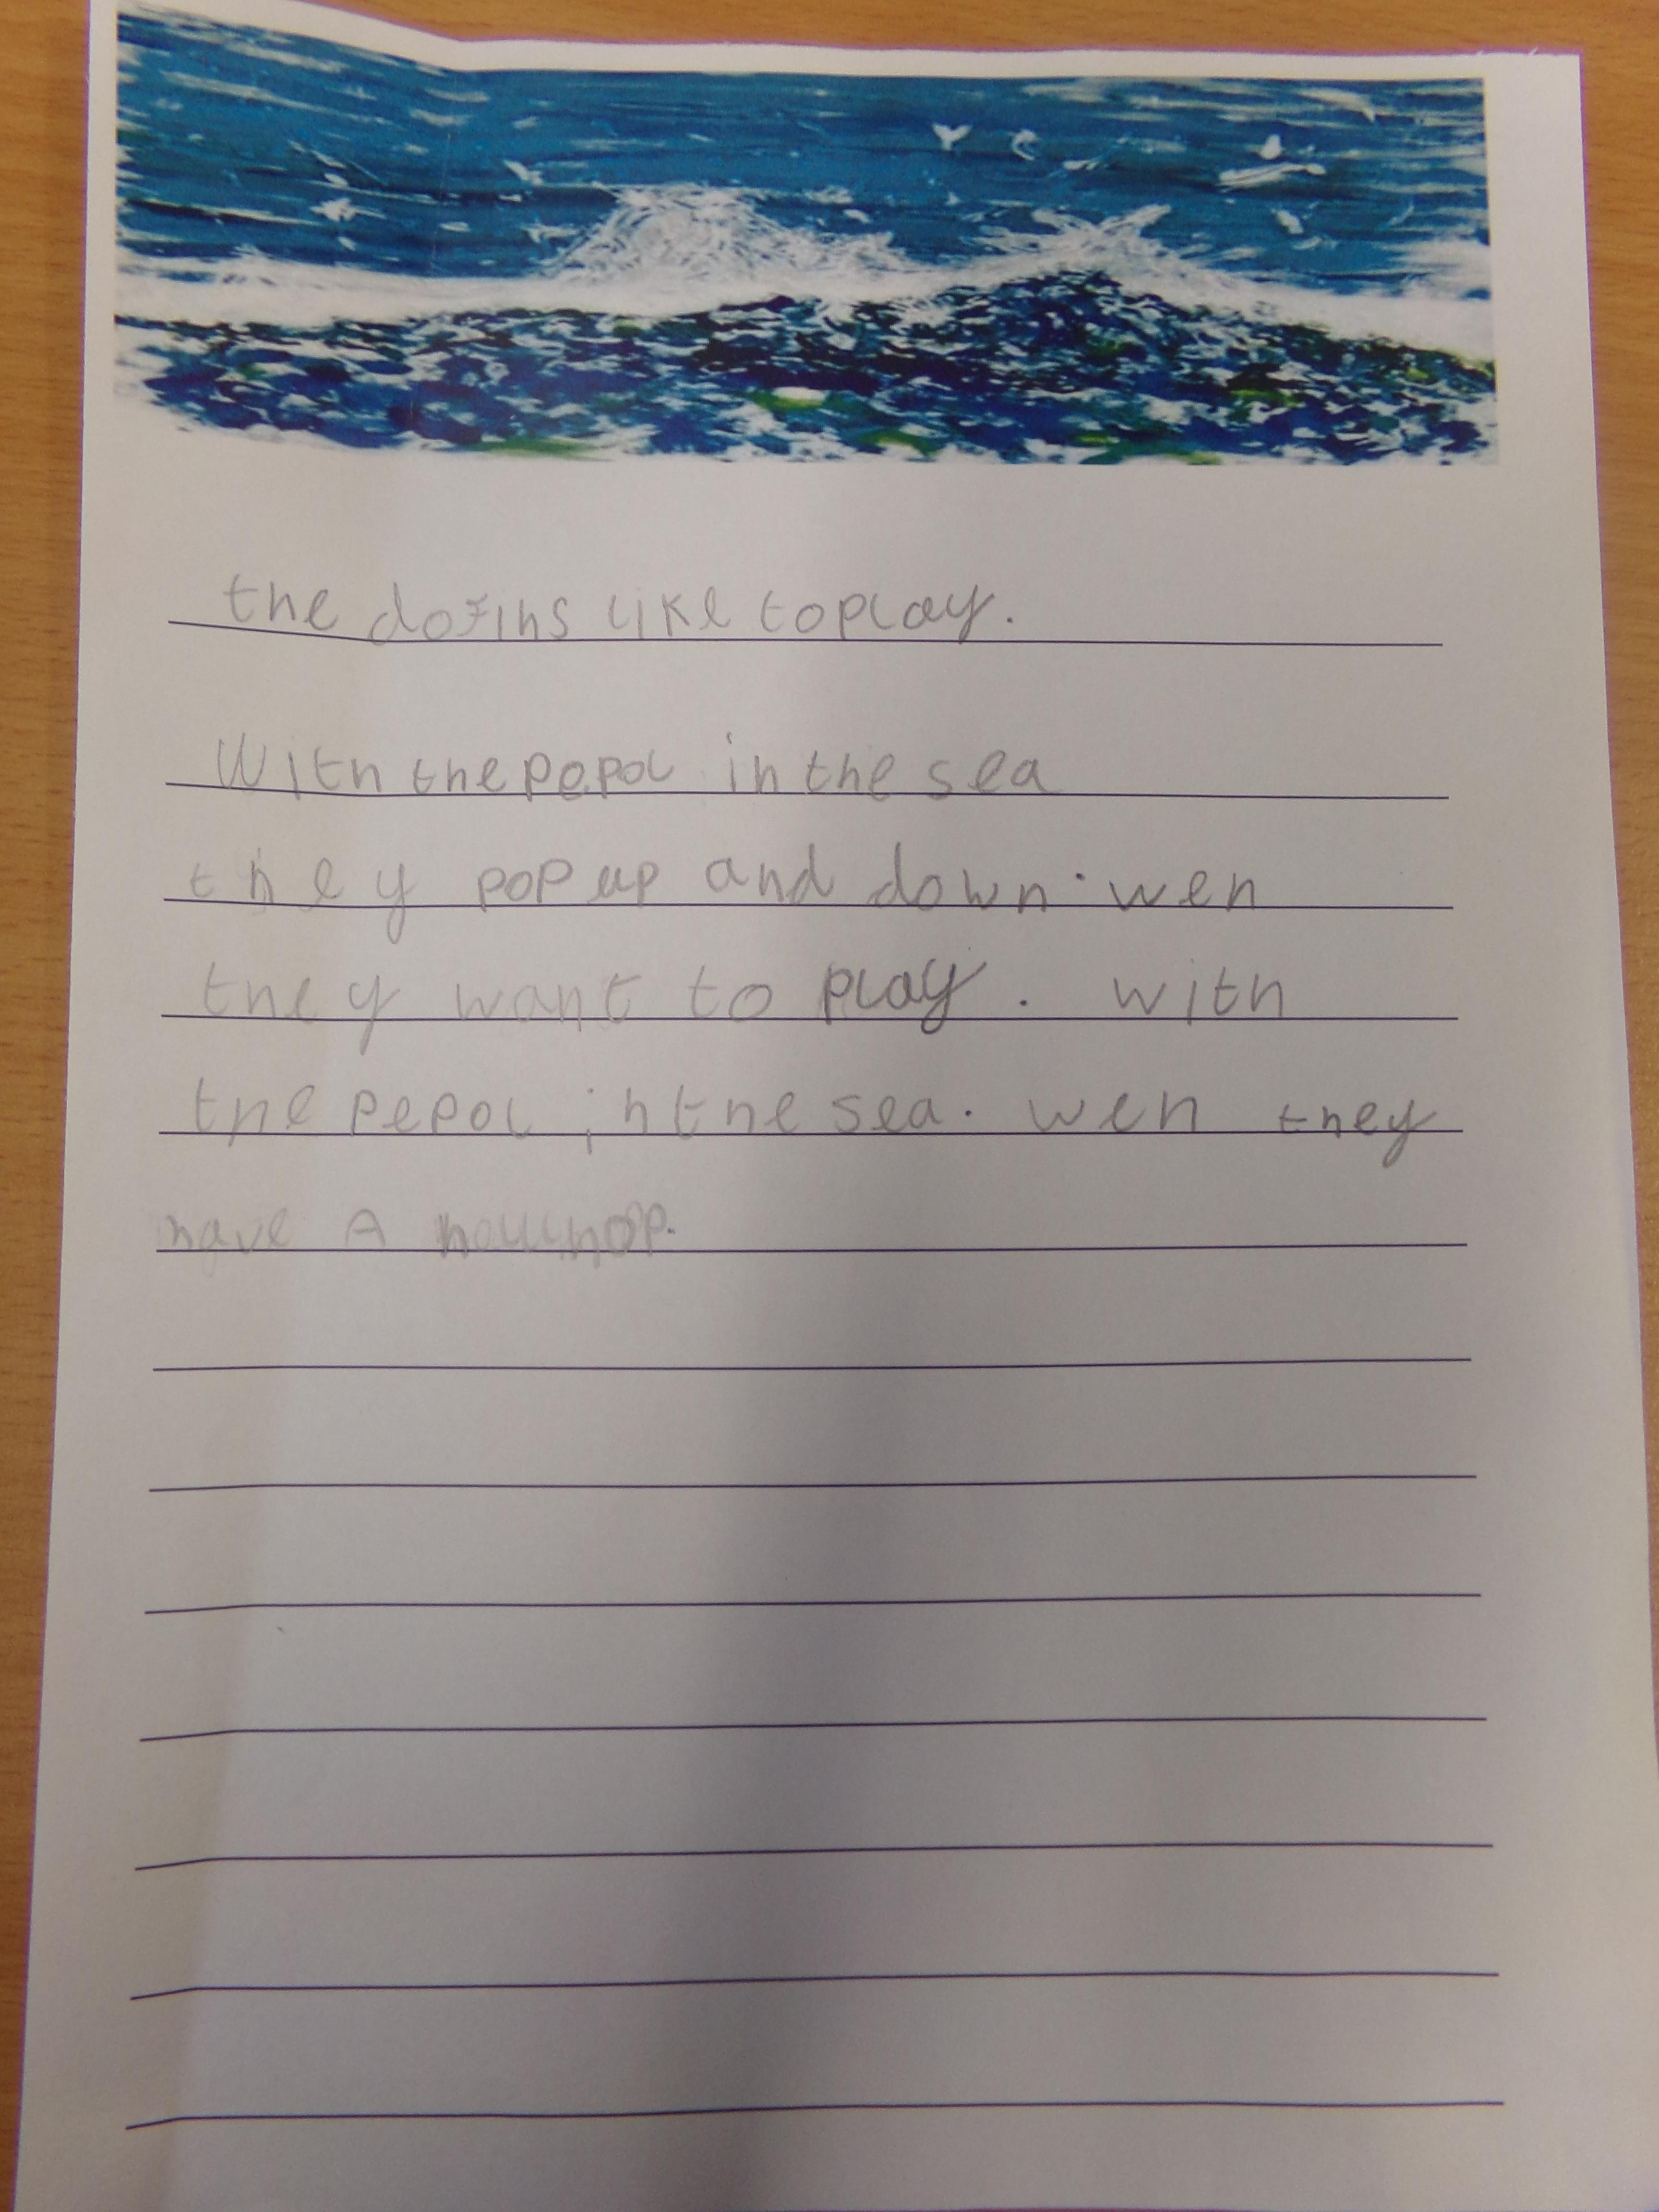 the dofins like to play.
With the pepol in the sea
they pop up and down. wen
they want to play. with
the pepol in the sea. wen they
have A